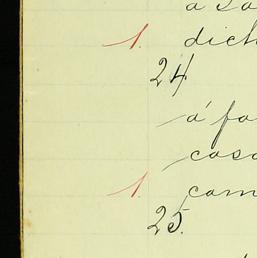 1. dich
24
á fa
casa
1. com
25.